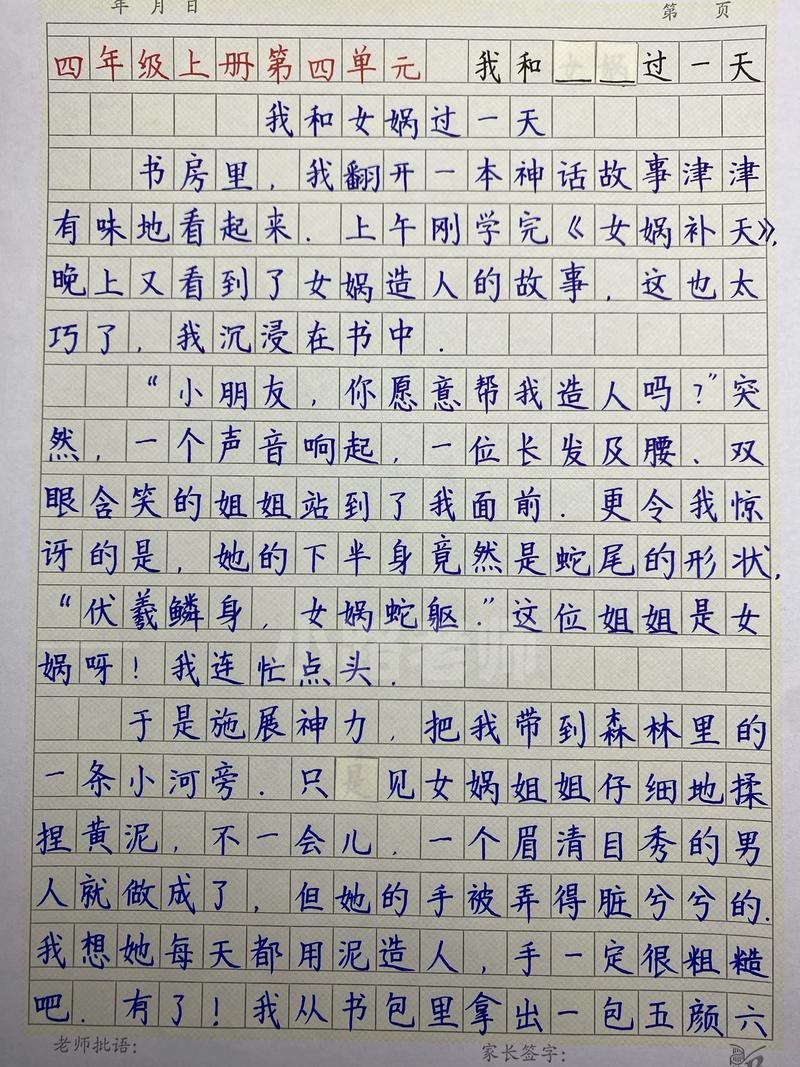 年 月 日 第 页
四年级上册第四单元 我和＿＿过一天
我和女娲过一天
书房里，我翻开一本神话故事津津
有味地看起来．上午刚学完《女娲补天》，
晚上又看到了女娲造人的故事，这也太
巧了，我沉浸在书中．
“小朋友，你愿意帮我造人吗？”突
然，一个声音响起，一位长发及腰、双
眼含笑的姐姐站到了我面前．更令我惊
讶的是，她的下半身竟然是蛇尾的形状，
“伏羲鳞身，女娲蛇躯．”这位姐姐是女
娲呀！我连忙点头．
于是施展神力，把我带到森林里的
一条小河旁．只见女娲姐姐仔细地揉
捏黄泥，不一会儿．一个眉清目秀的男
人就做成了，但她的手被弄得脏兮兮的．
我想她每天都用泥造人，手一定很粗糙
吧．有了！我从书包里拿出一包五颜六
老师批语： 家长签字：